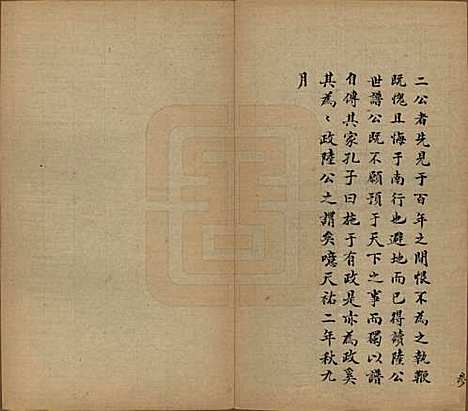 二公者先見于百年之間恨不為之執鞭
既愧且悔于南行也避地而已得讀陸公
世譜公既不願預于天下之事而獨以譜
自傳其家孔子曰施于有政是亦為政奚
其為〻政陸公之謂矣噫天祐二年秋九
月